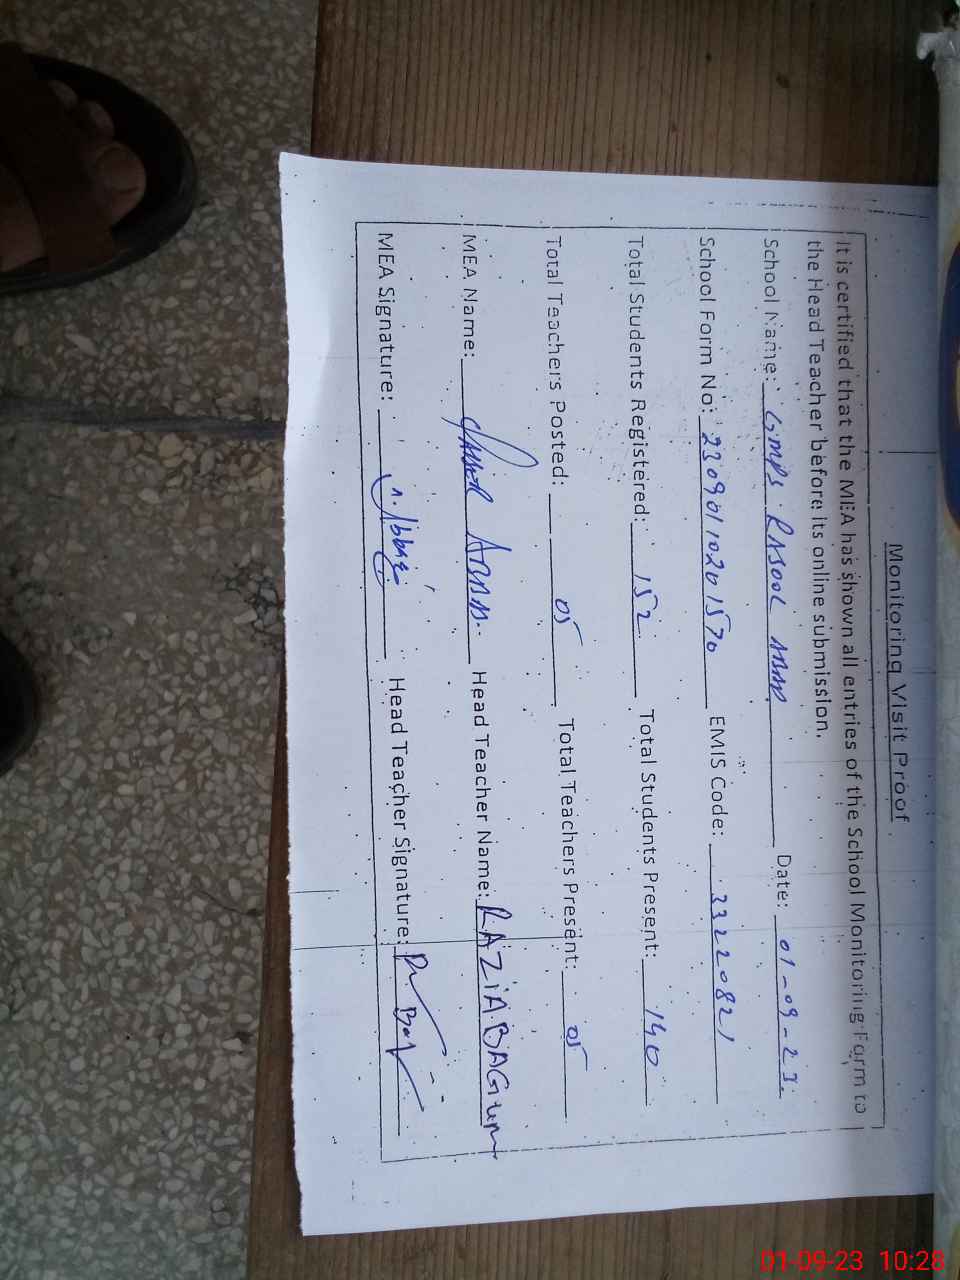 Monitoring Visit Proof
It is certified that the MEA has shown all entries of the School Monitoring Form to
the Head Teacher before its online submission.
School Name: GMPS RASOOL ABAD Date: 01-09-23.
School Form No: 2309011020 1570 EMIS Code: 33220821
Total Students Registered: 152 Total Students Present: 140
Total Teachers Posted: 05 Total Teachers Present: 05
MEA Name: Head Teacher Name: RAZIA BAGum
MEA Signature: Head Teacher Signature:
01-09-23 10:28